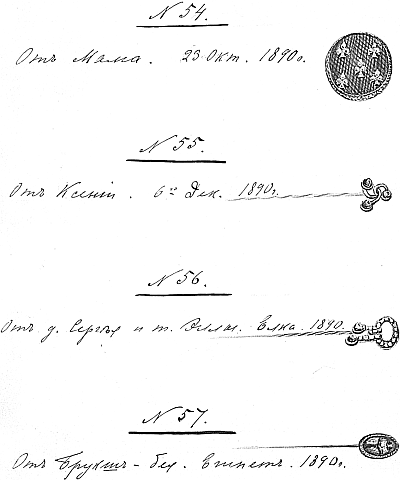 N 54.
Отъ Мама. 23 Окт. 1890 г.
N 55.
Отъ Ксеніи. 6го Дек. 1890 г.
N 56.
Отъ д. Сергѣя и т. Эллы. Елка. 1890.
N 57.
Отъ Бругшъ-бея. Египетъ. 1890 г.